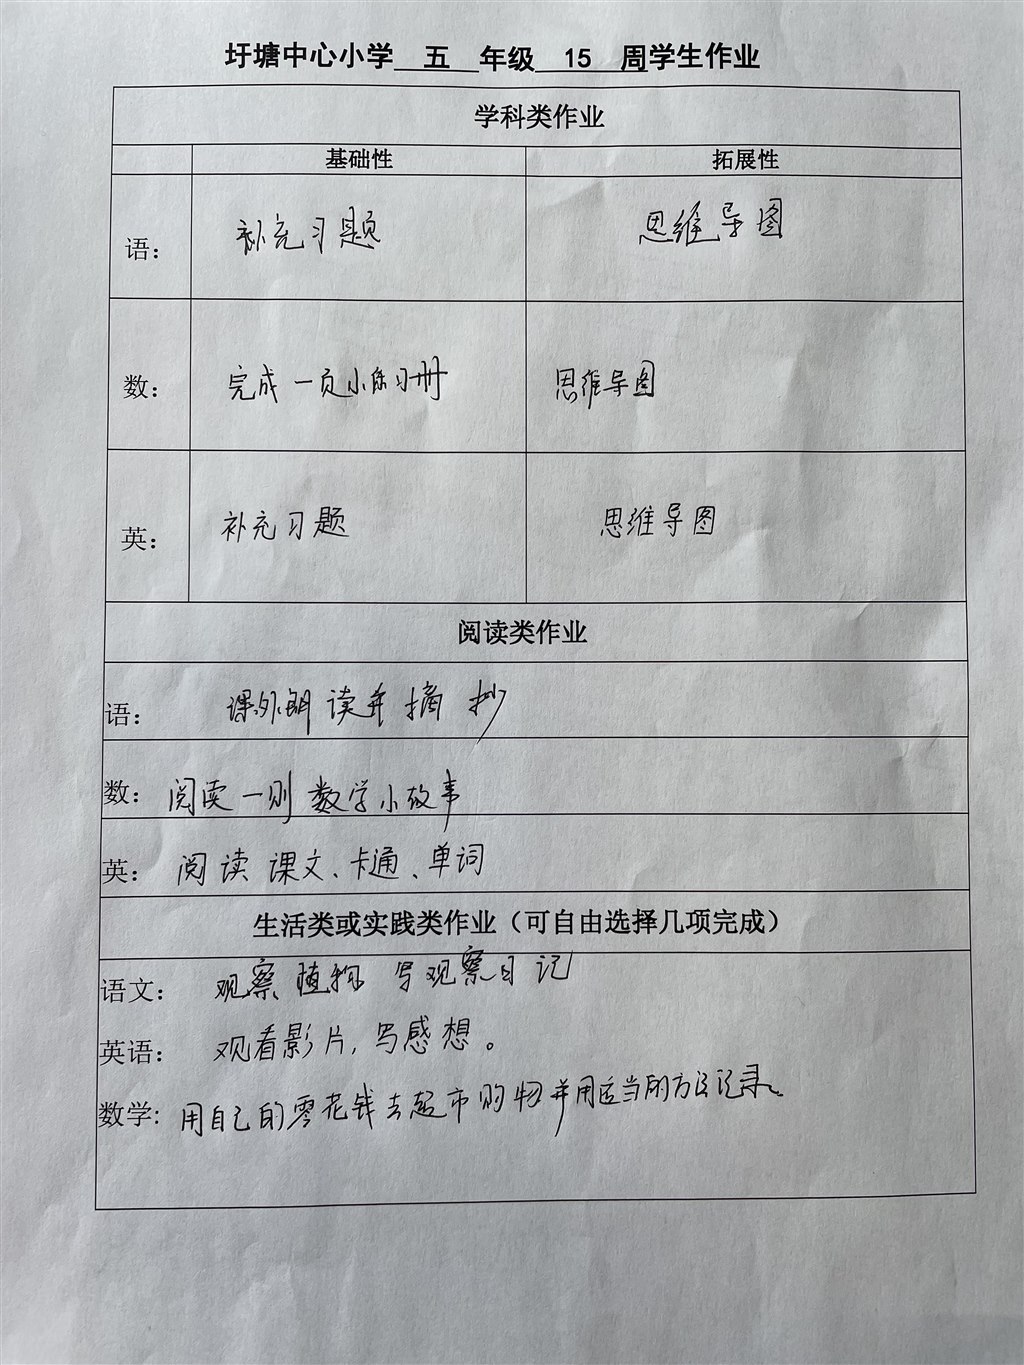 圩塘中心小学 五 年级 15 周学生作业
学科类作业
基础性 拓展性
语： 补充习题 思维导图
数： 完成一页小练习册 思维导图
英： 补充习题 思维导图
阅读类作业
语： 课外朗读并摘抄
数： 阅读一则数学小故事
英： 阅读课文、卡通、单词
生活类或实践类作业（可自由选择几项完成）
语文： 观察植物 写观察日记
英语： 观看影片，写感想。
数学: 用自己的零花钱去超市购物并用适当的方法记录。